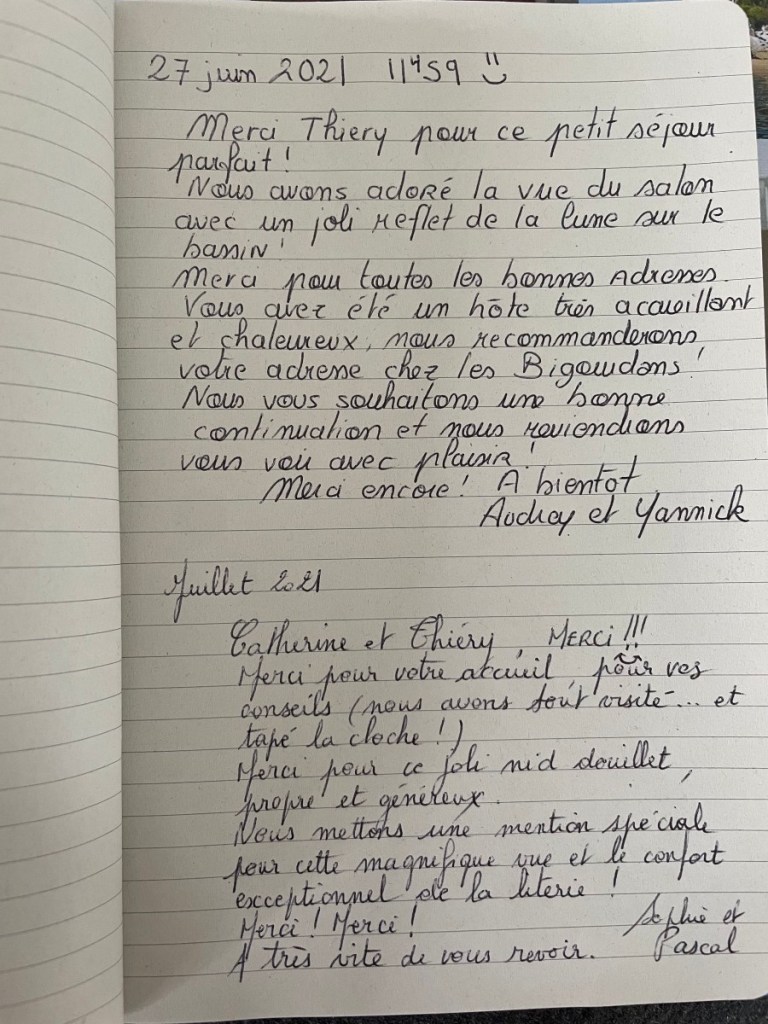 27 juin 2021 11H59
Merci Thiery pour ce petit séjour
parfait !
Nous avons adoré la vue du salon
avec un joli reflet de la lune sur le
bassin !
Merci pour toutes les bonnes adresses.
Vous avez été un hôte très accueillant
et chaleureux, nous recommanderons
votre adresse chez les Bigoudens !
Nous vous souhaitons une bonne
continuation et nous reviendrons
vous voir avec plaisir !
Merci encore ! A bientot
Audrey et Yannick
Juillet 2021
Catherine et Thiéry, MERCI !!!
Merci pour votre accueil, pour vos
conseils (nous avons tout visité... et
tapé la cloche !)
Merci pour ce joli nid douillet,
propre et généreux.
Nous mettons une mention spéciale
pour cette magnifique vue et le confort
exceptionnel de la literie !
Merci ! Merci !
A très vite de vous revoir.
Sophie et
Pascal